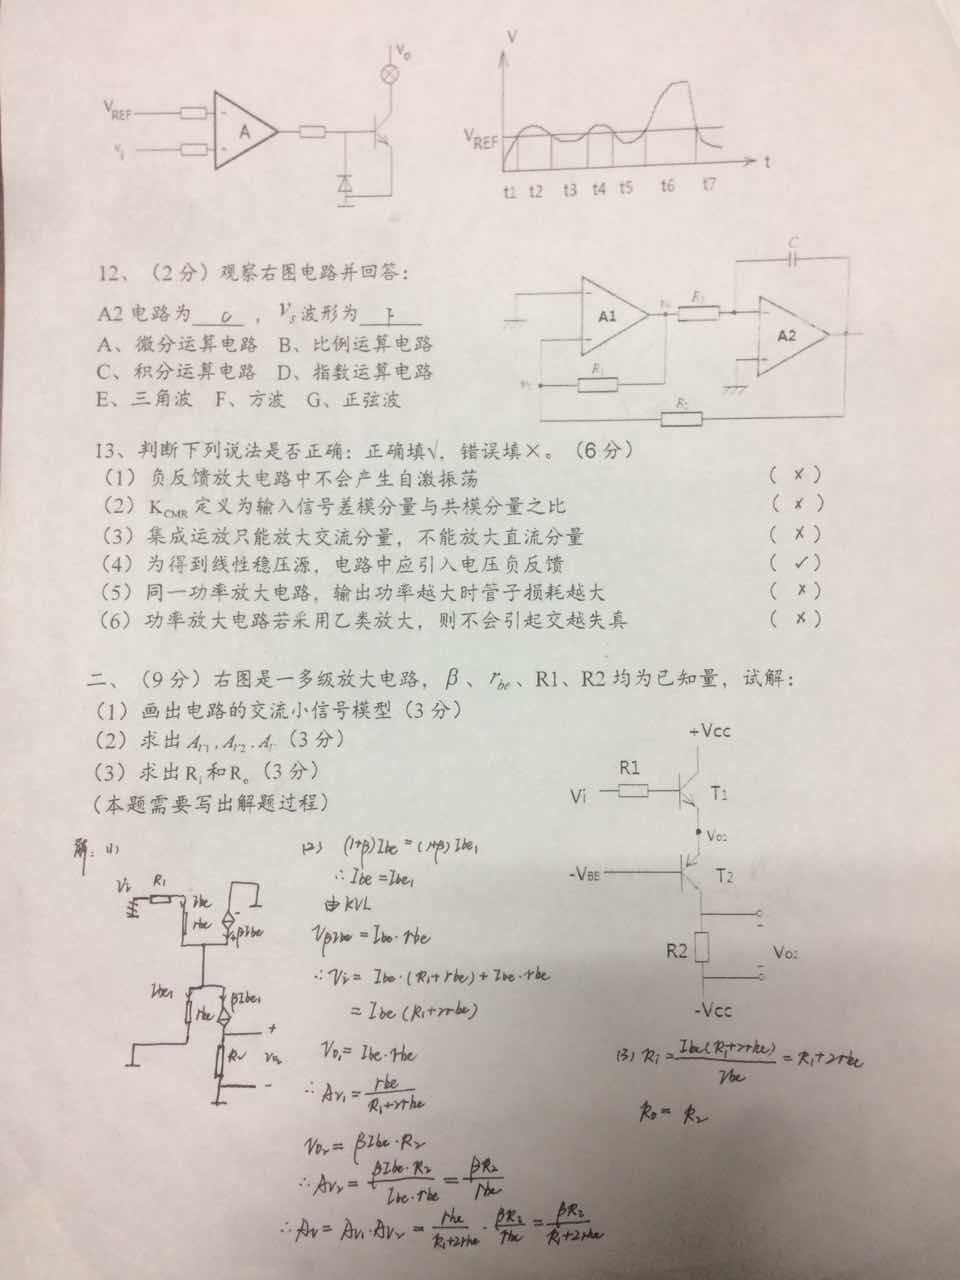 V₀
V_REF
A
v_i
V
V_REF
t
t1 t2 t3 t4 t5 t6 t7
12、（2分）观察右图电路并回答：
A2电路为 C ，V_S波形为 F
A、微分运算电路 B、比例运算电路
C、积分运算电路 D、指数运算电路
E、三角波 F、方波 G、正弦波
C
A1
A2
R₁
13、判断下列说法是否正确：正确填√，错误填×。（6分）
（1）负反馈放大电路中不会产生自激振荡 （ × ）
（2）K_CMR 定义为输入信号差模分量与共模分量之比 （ × ）
（3）集成运放只能放大交流分量，不能放大直流分量 （ × ）
（4）为得到线性稳压源，电路中应引入电压负反馈 （ ✓ ）
（5）同一功率放大电路，输出功率越大时管子损耗越大 （ × ）
（6）功率放大电路若采用乙类放大，则不会引起交越失真 （ × ）
二、（9分）右图是一多级放大电路，β、r_be、R1、R2均为已知量，试解：
（1）画出电路的交流小信号模型（3分）
（2）求出A_V1、A_V2、A_V（3分）
（3）求出R_i和R_o（3分）
（本题需要写出解题过程）
+Vcc
R1
Vi
T1
-V_BB
T2
R2
V_O2
-Vcc
解：(1)
Vi R₁
Ibe
rbe
βIbe
Ibe₁
rbe
βIbe₁
+
R₂
-
(2) (1+β)Ibe = (1+β)Ibe₁
∴Ibe = Ibe₁
由KVL
V_βIbe = Ibe·rbe
∴Vi = Ibe·(R₁+rbe) + Ibe·rbe
= Ibe(R₁+2rbe)
V₀₁ = Ibe·rbe
∴Av₁ = rbe / (R₁+2rbe)
V₀₂ = βIbe·R₂
∴Av₂ = βIbe·R₂ / (Ibe·rbe) = βR₂ / rbe
∴Av = Av₁·Av₂ = rbe / (R₁+2rbe) · βR₂ / rbe = βR₂ / (R₁+2rbe)
(3) Ri = Ibe(R₁+2rbe) / Ibe = R₁+2rbe
R₀ = R₂